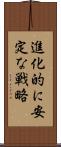 進化的に安
定な戦略